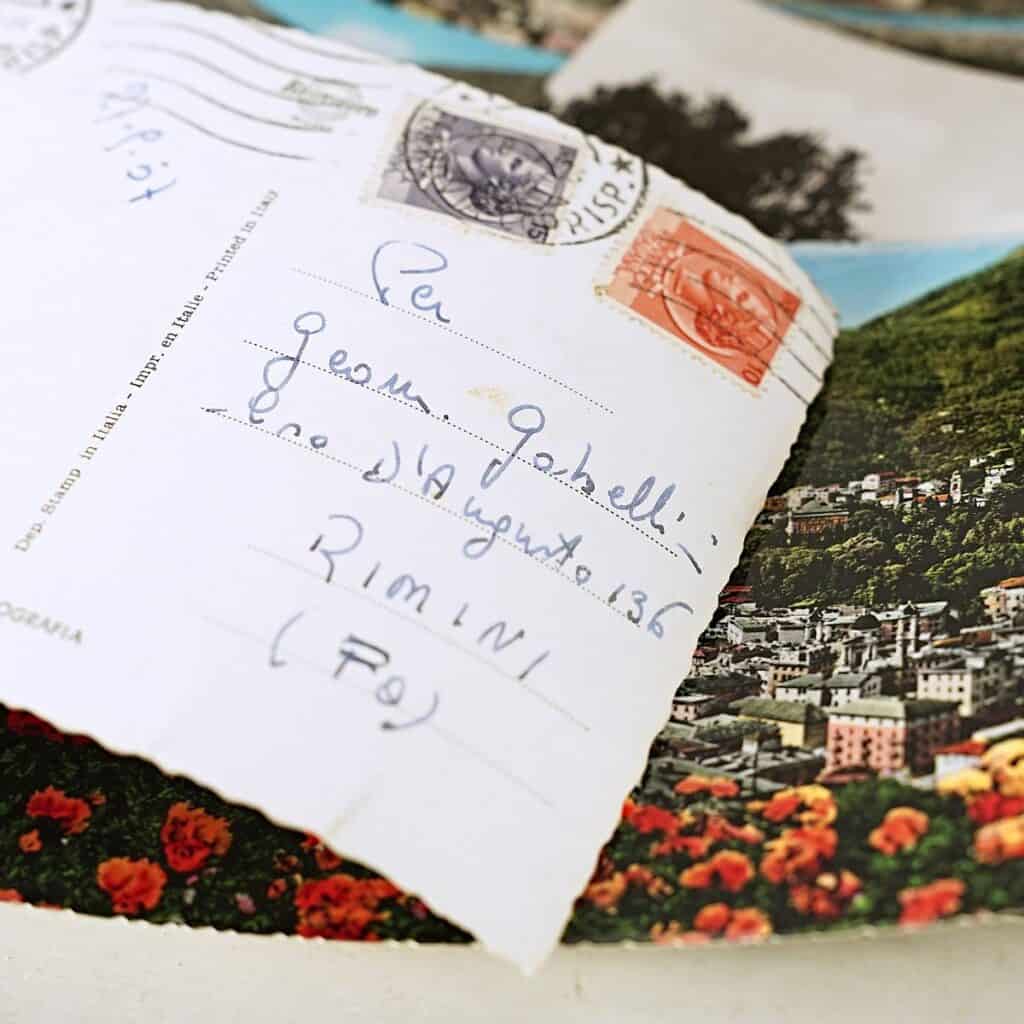 RISP.
RISP.
15
10
Per
geom. Gabelli -
C.so D'Augusto 136
RIMINI
(FO)
Dep. Stamp in Italia - Impr. en Italie - Printed in Italy
OGRAFIA